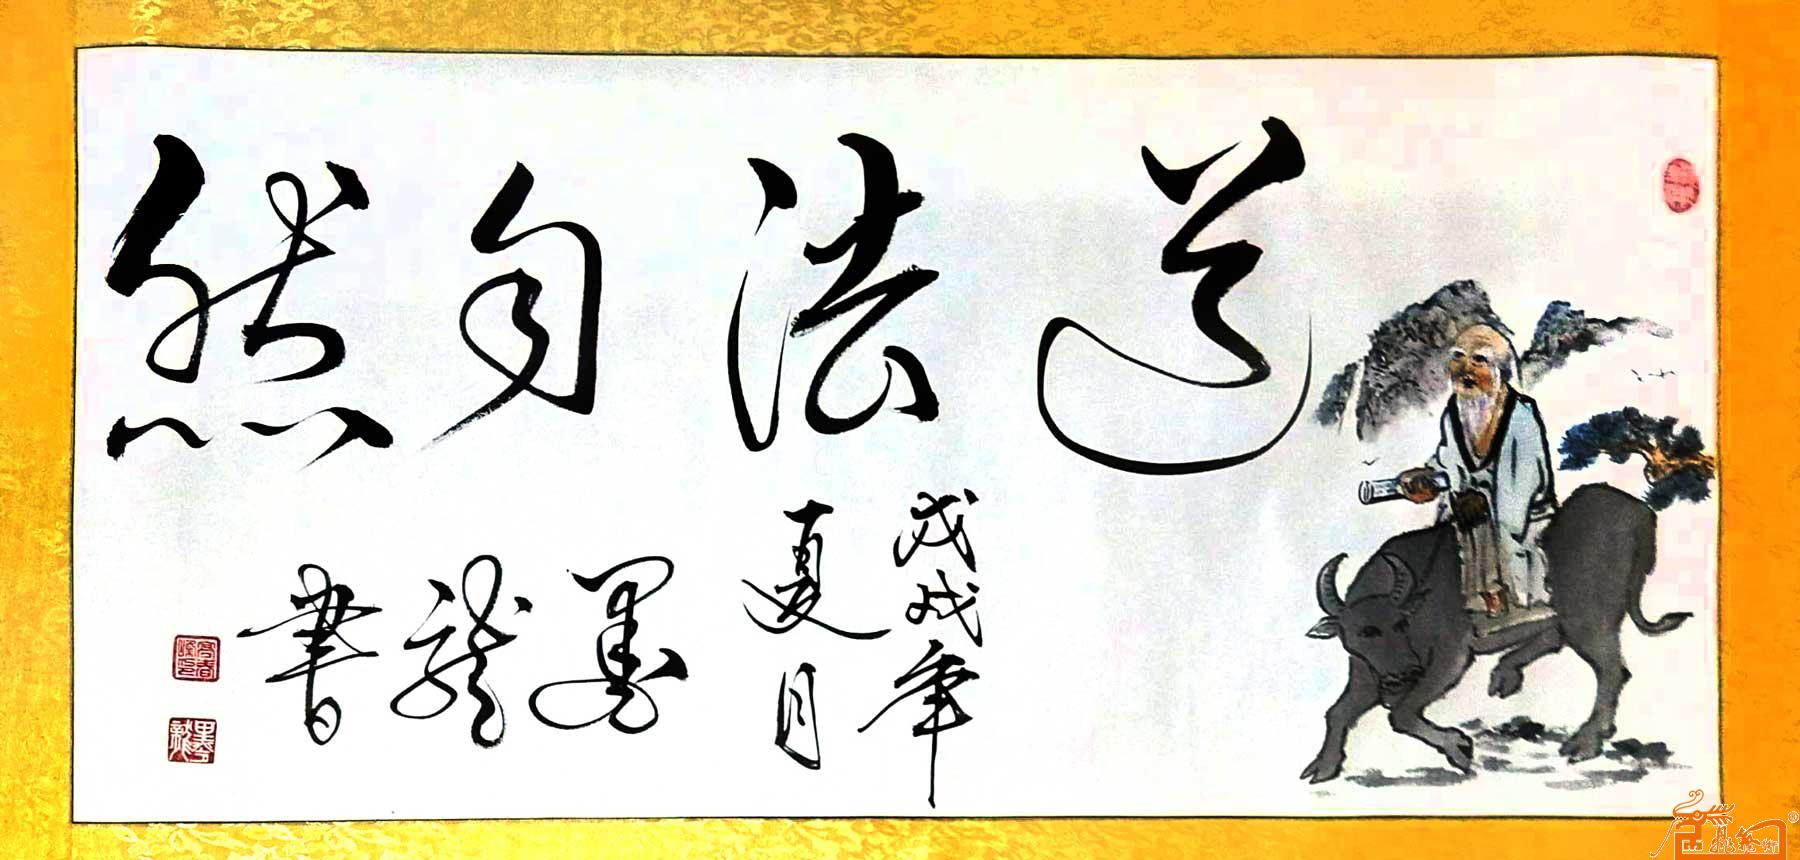 道法自然
戊戌年
夏月
墨龙書